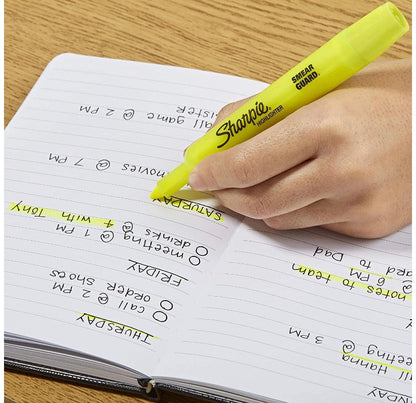 Sharpie
HIGHLIGHTER
SMEAR
GUARD
THURSDAY
call @ 2 PM
order shoes
FRIDAY
meeting @ 1 PM
drinks @ 4 with Tony
SATURDAY
movies @ 7 PM
sister
all game @ 2 PM
all Hanna
eeting @ 3 PM
notes to team
@ 6 PM
to Dad